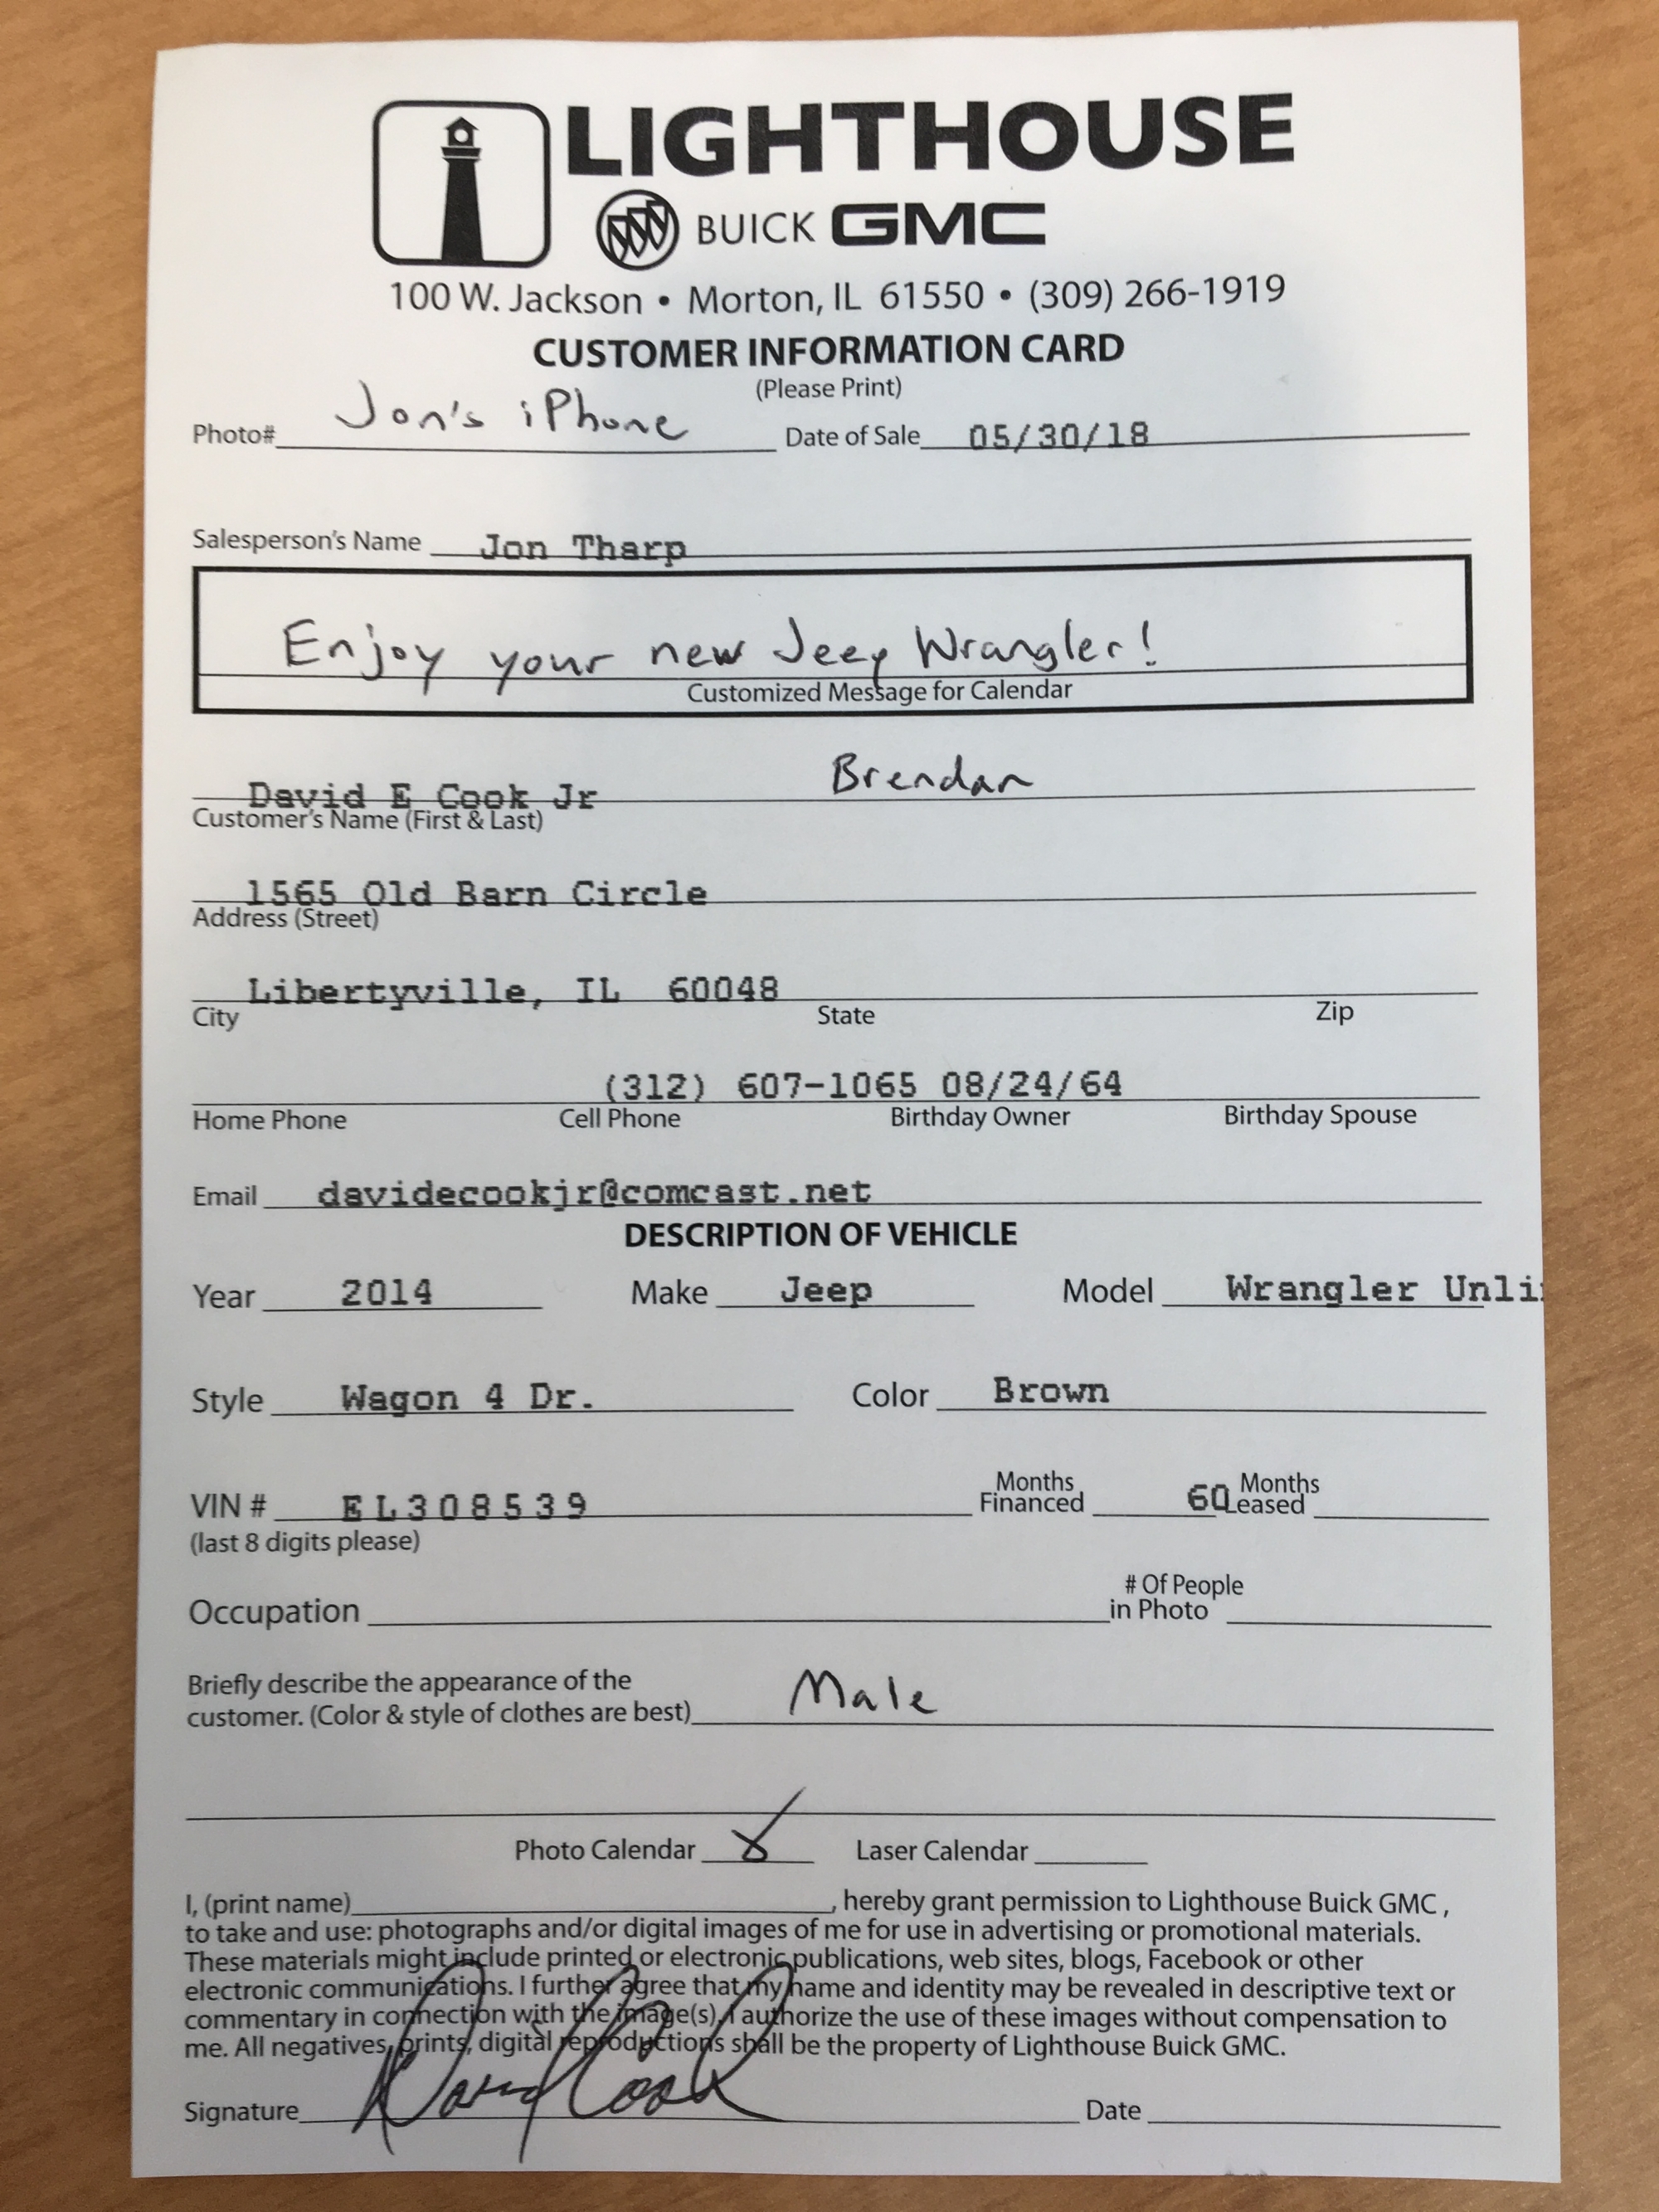 LIGHTHOUSE
BUICK GMC
100 W. Jackson • Morton, IL 61550 • (309) 266-1919
CUSTOMER INFORMATION CARD
(Please Print)
Photo# Jon's iPhone Date of Sale 05/30/18
Salesperson's Name Jon Tharp
Enjoy your new Jeep Wrangler!
Customized Message for Calendar
David E Cook Jr Brendan
Customer's Name (First & Last)
1565 Old Barn Circle
Address (Street)
Libertyville, IL 60048
City State Zip
(312) 607-1065 08/24/64
Home Phone Cell Phone Birthday Owner Birthday Spouse
Email davidecookjr@comcast.net
DESCRIPTION OF VEHICLE
Year 2014 Make Jeep Model Wrangler Unli
Style Wagon 4 Dr. Color Brown
VIN # EL308539 Months Financed 60 Months Leased
(last 8 digits please)
Occupation # Of People in Photo
Briefly describe the appearance of the
customer. (Color & style of clothes are best) Male
Photo Calendar X Laser Calendar
I, (print name), hereby grant permission to Lighthouse Buick GMC,
to take and use: photographs and/or digital images of me for use in advertising or promotional materials.
These materials might include printed or electronic publications, web sites, blogs, Facebook or other
electronic communications. I further agree that my name and identity may be revealed in descriptive text or
commentary in connection with the image(s). I authorize the use of these images without compensation to
me. All negatives, prints, digital reproductions shall be the property of Lighthouse Buick GMC.
Signature David Cook Date